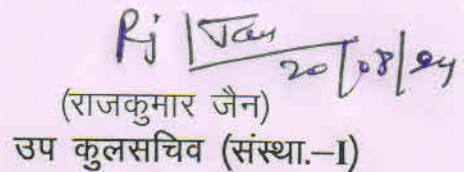 Rj Jain
20/08/24
(राजकुमार जैन)
उप कुलसचिव (संस्था.–I)